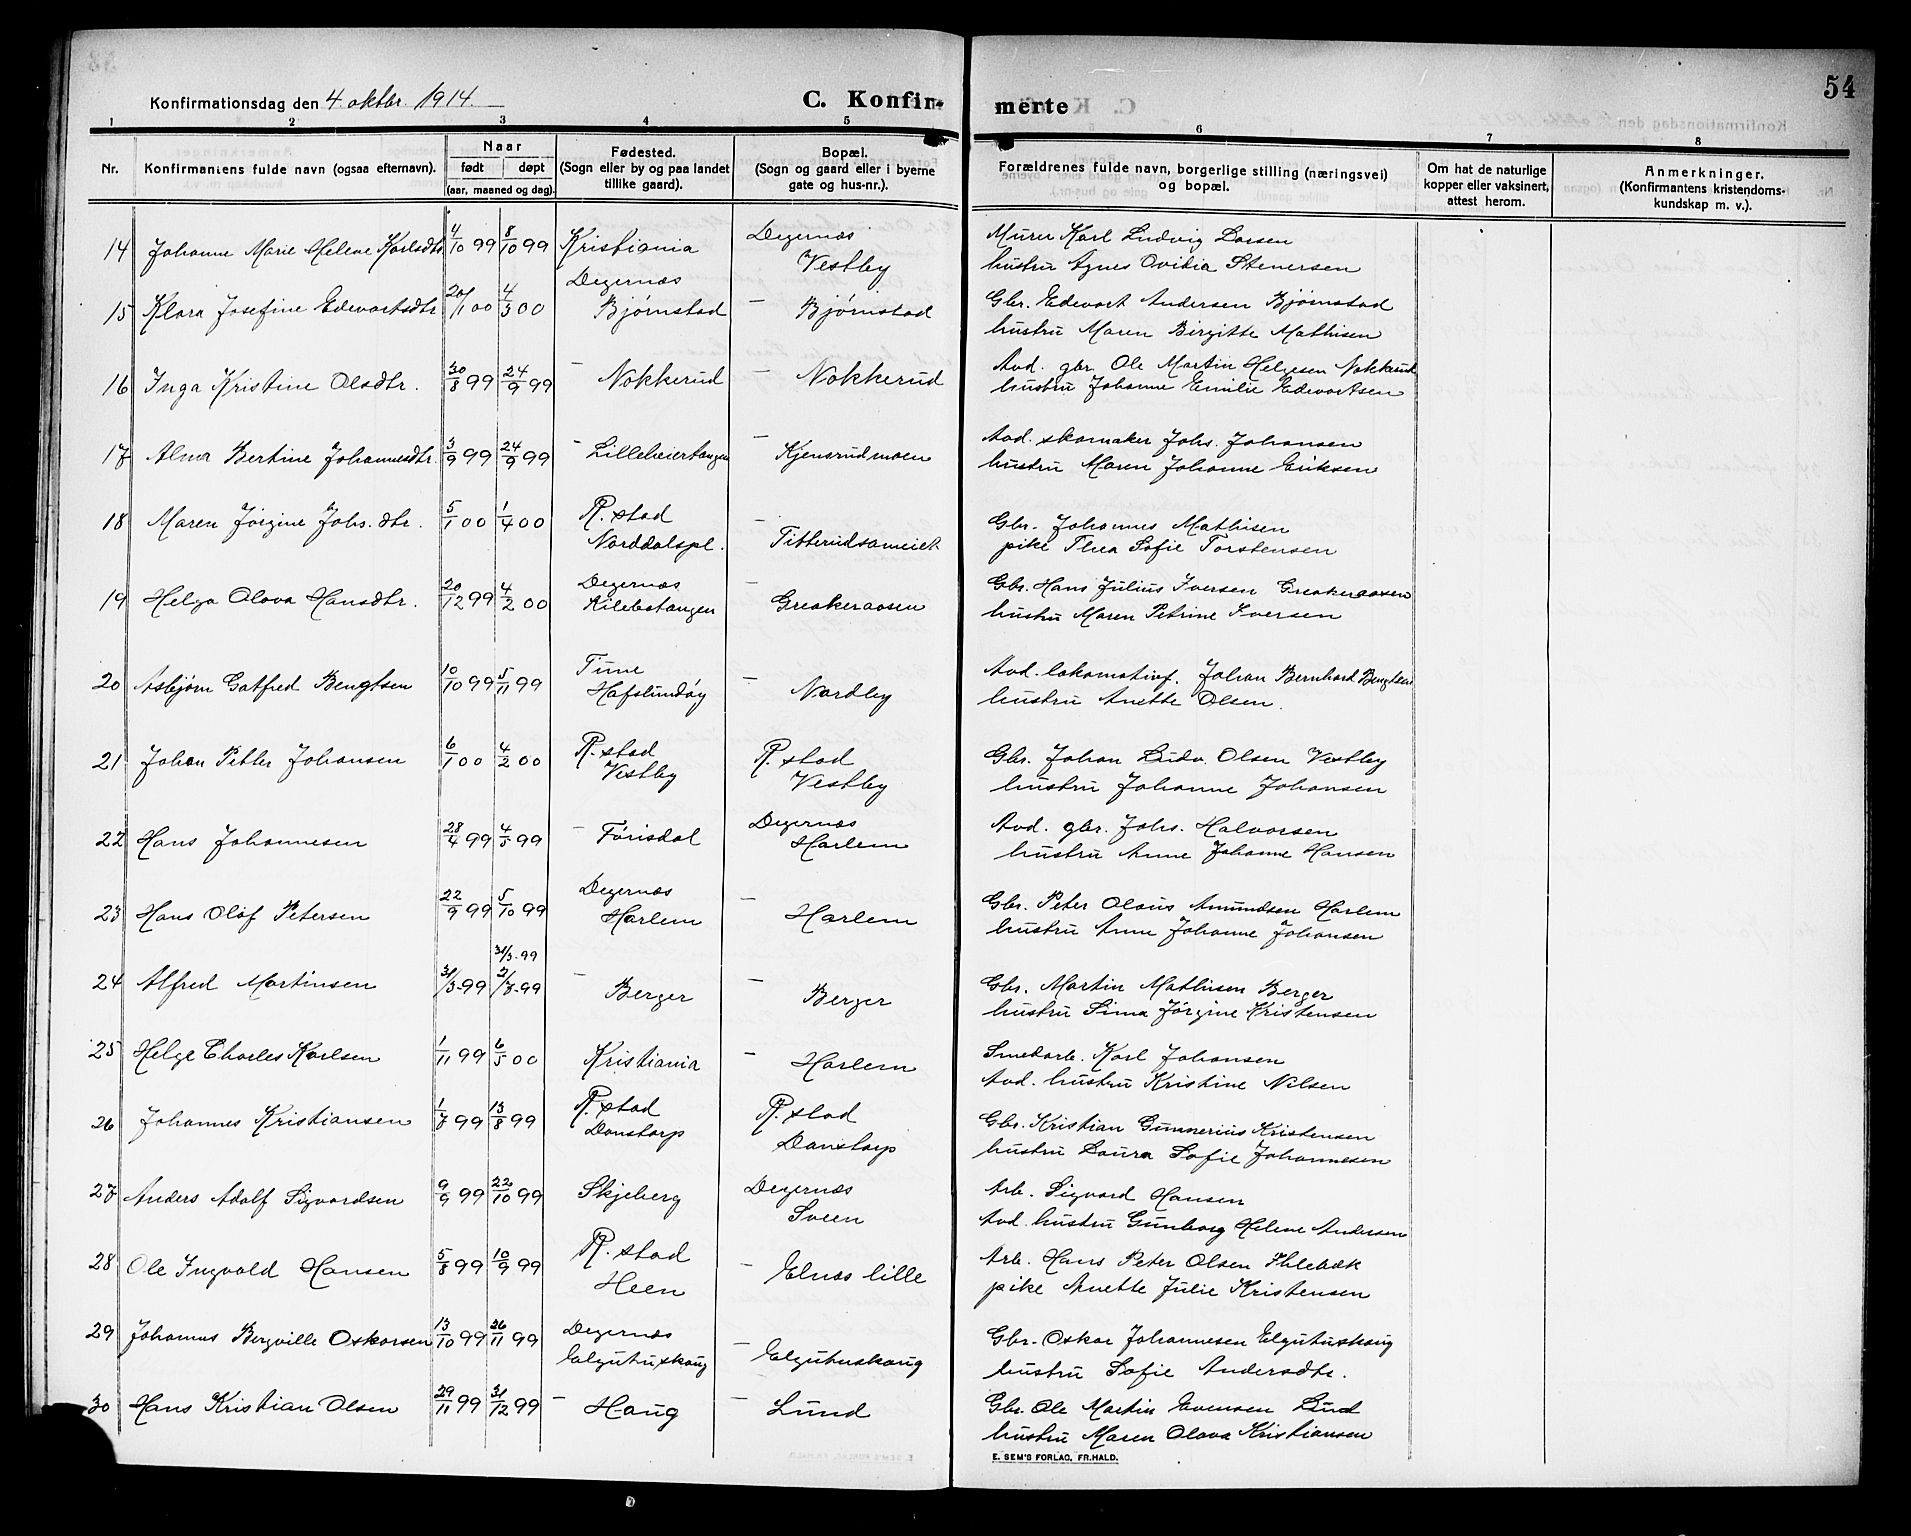 54
Konfirmationsdag den 4. oktbr. 1914.
C. Konfir- merte
1 2 3 4 5 6 7 8
Nr. Konfirmantens fulde navn (ogsaa efternavn). Naar født døpt (aar, maaned og dag). Fødested. (Sogn eller by og paa landet tillike gaard). Bopæl. (Sogn og gaard eller i byerne gate og hus-nr.). Forældrenes fulde navn, borgerlige stilling (næringsvei) og bopæl. Om hat de naturlige kopper eller vaksinert, attest herom. Anmerkninger. (Konfirmantens kristendoms- kundskap m. v.).
14 Johanne Marie Helene Karlsdtr 4/10 99 8/10 99 Kristiania Degernæs Vestby Murer Karl Ludvig Larsen
hustru Agnes Ovidia Stenersen
15 Klara Josefine Edevartsdtr 20/1 00 4/3 00 Degernæs Bjørnstad — Bjørnstad Gbr. Edevart Andersen Bjørnstad
hustru Maren Birgitte Mathisen
16 Inga Kristine Olsdtr. 30/8 99 24/9 99 — Nokkerud — Nokkerud Avd. gbr. Ole Martin Helgesen Nokkerud
hustru Johanne Emilie Edevartsen
17 Alma Bertine Johannesdtr. 3/9 99 24/9 99 — Lilleheiertangen — Kjensrudmoen Avd. skomaker Johs. Johansen
hustru Maren Johanne Eriksen
18 Maren Jørgine Johs.dtr. 5/1 00 1/4 00 R.stad Norddalspl. — Titterudsameiet Gbr. Johannes Mathisen
pike Thea Sofie Torstensen
19 Helga Olava Hansdtr. 20/12 99 4/2 00 Degernæs Kilebotangen — Greakeraasen Gbr. Hans Julius Iversen Greakeraasen
hustru Maren Petrine Iversen
20 Asbjørn Gotfred Bengtsen 10/10 99 5/11 99 Tune Hafslundøy — Nordby Avd. lokomotivf. Johan Bernhard Bengtsen
hustru Anette Olsen.
21 Johan Petter Johansen 6/1 00 4/2 00 R.stad Vestby R.stad Vestby Gbr. Johan Ludv. Olsen Vestby
hustru Johanne Johansen
22 Hans Johannesen 28/4 99 4/5 99 — Førisdal Degernæs Harlem Avd. gbr. Johs. Halvorsen
hustru Anne Johanne Hansen
23 Hans Olof Petersen 22/9 99 5/10 99 Degernæs Harlem — Harlem Gbr. Peter Olaus Amundsen Harlem
hustru Anne Johanne Johansen
31/3-99
24 Alfred Martinsen 31/3-99 2/7-99 — Berger — Berger Gbr. Martin Mathisen Berger
hustru Sina Jørgine Kristensen
25 Helge Charles Karlsen 1/11 99 6/5 00 Kristiania — Harlem Smedarb. Karl Johansen
Avd. hustru Kristine Nilsen
26 Johannes Kristiansen 1/7 99 13/8 99 R.stad Danstorp R.stad Danstorp Gbr. Kristian Gunnerius Kristensen
hustru Laura Sofie Johannesen
27 Anders Adolf Sigvardsen 9/9 99 22/10 99 Skjeberg Degernæs Sveen Arb. Sigvard Hansen
Avd. hustru Gunborg Helene Andersen
28 Ole Ingvald Hansen 5/8 99 10/9 99 R.stad Heen — Elnæs lille Arb. Hans Peter Olsen Ihlebæk
pike Anette Julie Kristensen
29 Johannes Bergville Oskarsen 13/10 99 26/11 99 Degernæs Elgutuskaug — Elgutuskaug Gbr. Oskar Johannesen Elgutuskaug
hustru Sofie Andersdtr.
30 Hans Kristian Olsen 29/11 99 31/12 99 — Haug — Lund Gbr. Ole Martin Evensen Lund
hustru Maren Olava Kristiansen
E. SEM'S FORLAG, FR.HALD.